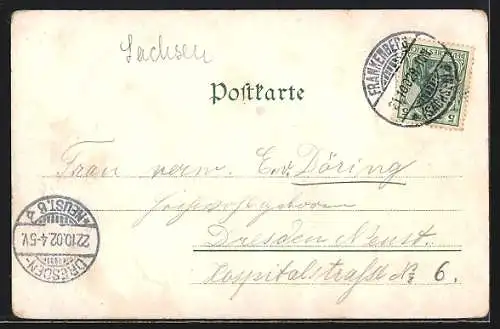 Sachsen
Postkarte
FRANKENBERG
(SACHSEN)
Frau verw. E. v. Döring
Hochwohlgeboren
Dresden Neust.
Hospitalstraße № 6.
DRESDEN-
22.10.02.4-5V.
*NEUST. 8.